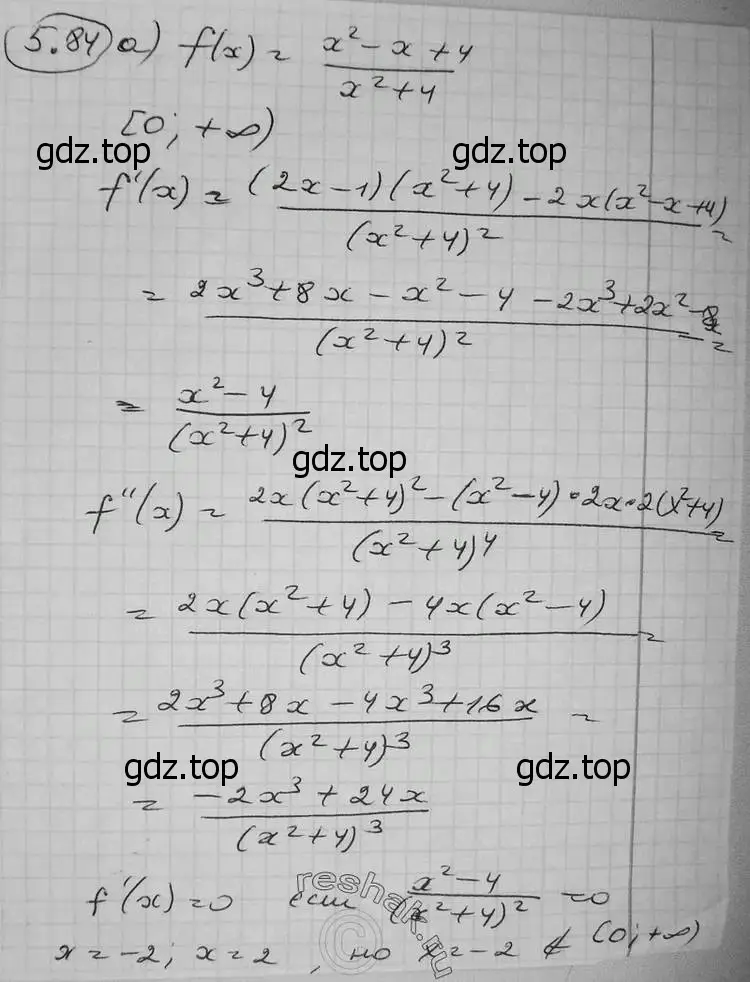 5.84 а) f(x) = (x² - x + 4)/(x² + 4)
[0; +∞)
gdz.top gdz.top
f'(x) = ((2x - 1)(x² + 4) - 2x(x² - x + 4))/(x² + 4)² =
= (2x³ + 8x - x² - 4 - 2x³ + 2x² - 8x)/(x² + 4)² =
= (x² - 4)/(x² + 4)²
gdz.top
f''(x) = (2x(x² + 4)² - (x² - 4) · 2x · 2(x² + 4))/(x² + 4)⁴ =
= (2x(x² + 4) - 4x(x² - 4))/(x² + 4)³ =
= (2x³ + 8x - 4x³ + 16x)/(x² + 4)³ =
gdz.top gdz.top
= (-2x³ + 24x)/(x² + 4)³
reshak.ru
f'(x) = 0 если (x² - 4)/(x² + 4)² = 0
x = -2; x = 2, но x = -2 ∉ (0; +∞)